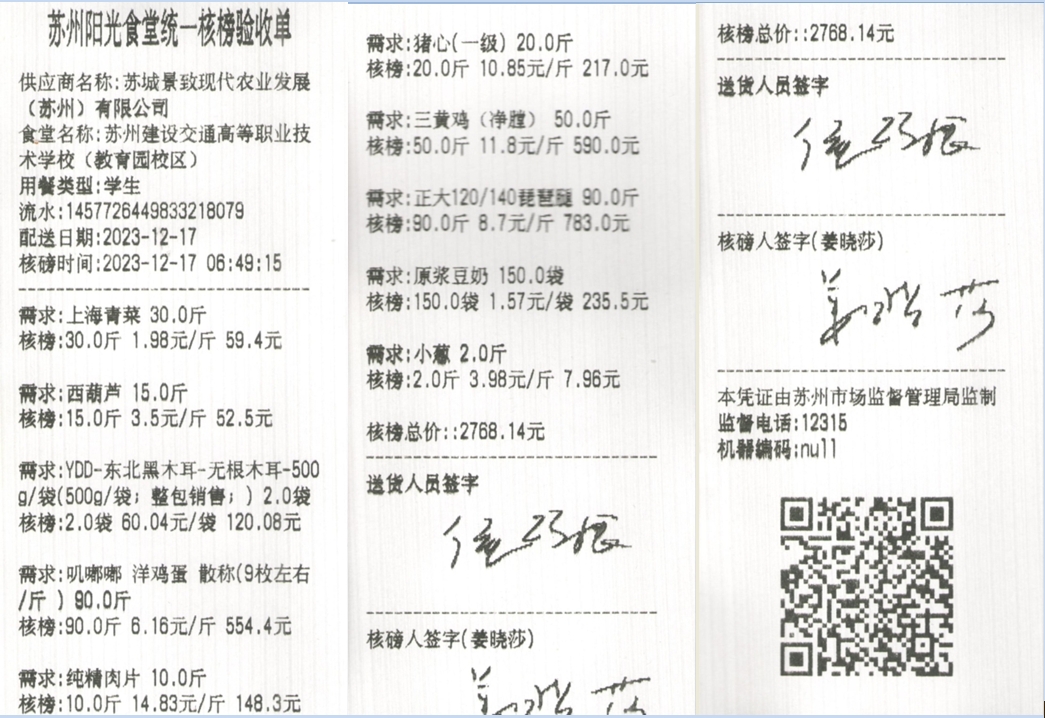 苏州阳光食堂统一核榜验收单
供应商名称:苏城景致现代农业发展
（苏州）有限公司
食堂名称:苏州建设交通高等职业技
术学校（教育园校区）
用餐类型:学生
流水:1457726449833218079
配送日期:2023-12-17
核磅时间:2023-12-17 06:49:15
需求:上海青菜 30.0斤
核榜:30.0斤 1.98元/斤 59.4元
需求:西葫芦 15.0斤
核榜:15.0斤 3.5元/斤 52.5元
需求:YDD-东北黑木耳-无根木耳-500
g/袋(500g/袋; 整包销售; ) 2.0袋
核榜:2.0袋 60.04元/袋 120.08元
需求:叽嘟嘟 洋鸡蛋 散称(9枚左右
/斤 ) 90.0斤
核榜:90.0斤 6.16元/斤 554.4元
需求:纯精肉片 10.0斤
核榜:10.0斤 14.83元/斤 148.3元
需求:猪心(一级) 20.0斤
核榜:20.0斤 10.85元/斤 217.0元
需求:三黄鸡（净膛） 50.0斤
核榜:50.0斤 11.8元/斤 590.0元
需求:正大120/140琵琶腿 90.0斤
核榜:90.0斤 8.7元/斤 783.0元
需求:原浆豆奶 150.0袋
核榜:150.0袋 1.57元/袋 235.5元
需求:小葱 2.0斤
核榜:2.0斤 3.98元/斤 7.96元
核榜总价::2768.14元
送货人员签字
核磅人签字(姜晓莎)
姜晓莎
核榜总价::2768.14元
送货人员签字
核磅人签字(姜晓莎)
姜晓莎
本凭证由苏州市场监督管理局监制
监督电话:12315
机器编码:null